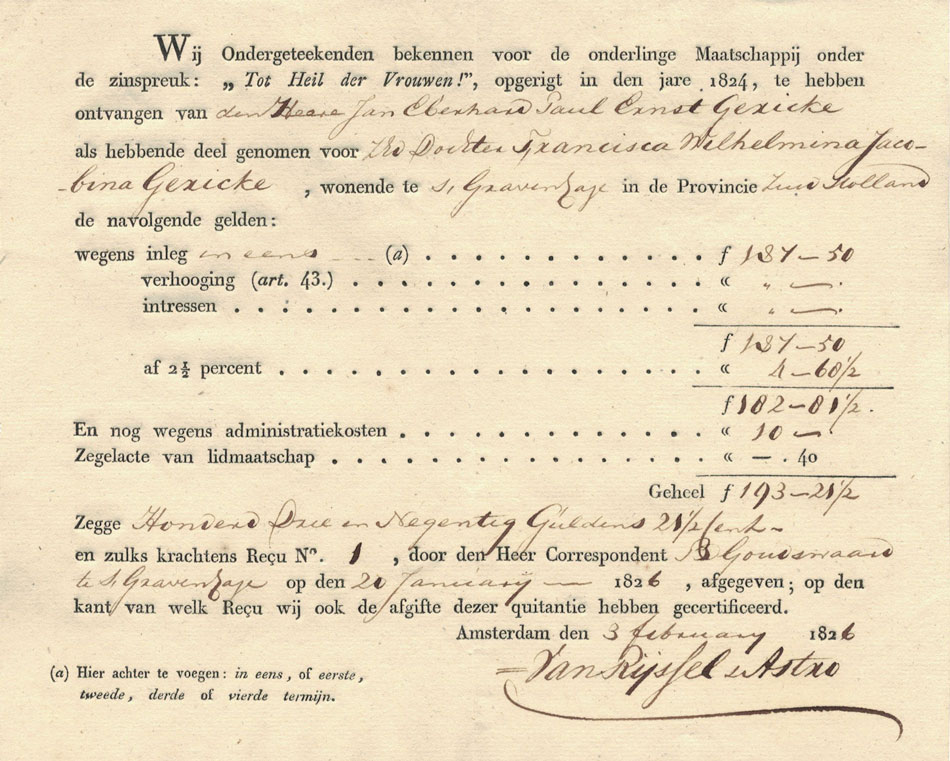 Wij Ondergeteekenden bekennen voor de onderlinge Maatschappij onder
de zinspreuk: „ Tot Heil der Vrouwen!”, opgerigt in den jare 1824, te hebben
ontvangen van den Heere Jan Eberhard Paul Ernst Gericke
als hebbende deel genomen voor Dochter Francisca Wilhelmina Jaco-
-bina Gericke , wonende te s'Gravenhage in de Provincie Zuid Holland
de navolgende gelden:
wegens inleg in eens (a) . . . . . . . . . . . . . f 187-50
verhooging (art. 43.) . . . . . . . . . . . . . . « „ —.
intressen . . . . . . . . . . . . . . . . . . « „ —.
f 187-50
af 2½ percent . . . . . . . . . . . . . . . . . « 4-68½
f 182-81½.
En nog wegens administratiekosten . . . . . . . . . . . . « 10 —.
Zegelacte van lidmaatschap . . . . . . . . . . . . . . . « — . 40
Geheel f 193-21½
Zegge Honderd Drie en Negentig Guldens 21½ Cent-
en zulks krachtens Reçu Nº. 1 , door den Heer Correspondent B Goudswaard
te s'Gravenhage op den 20 January — 1826 , afgegeven; op den
kant van welk Reçu wij ook de afgifte dezer quitantie hebben gecertificeerd.
Amsterdam den 3 february 1826
(a) Hier achter te voegen: in eens, of eerste,
Van Rijssel & Astro
tweede, derde of vierde termijn.